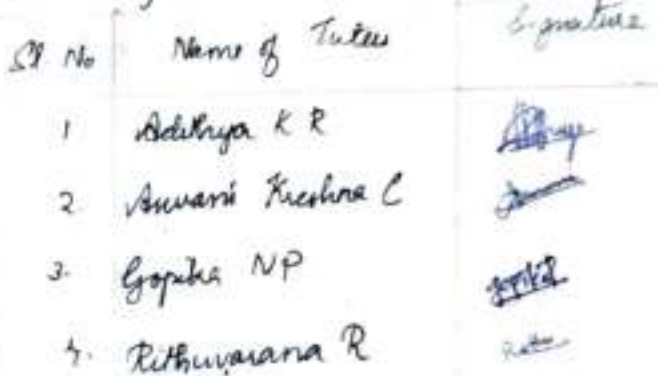 Sl No Name of Tutees Signature
1 Adithya K R
2 Aswani Krishna C
3. Gopika NP Gopika
4. Rithuvarana R